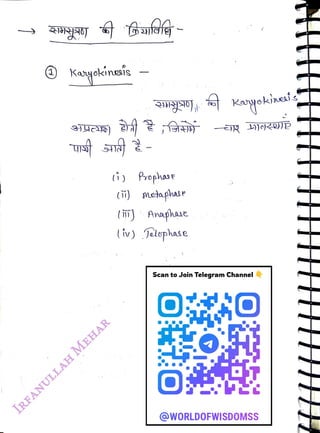 → समसूत्रण की क्रियाविधि -
① Karyokinesis -
समसूत्रण की Karyokinesis
अप्रत्यक्ष होती है, जिसमें चार प्रावस्थाएँ
पायी जाती है -
(i) Prophase
(ii) metaphase
(iii) Anaphase
(iv) Telophase
Scan to Join Telegram Channel 👇
@WORLDOFWISDOMSS
IRFANULLAH MEHAR